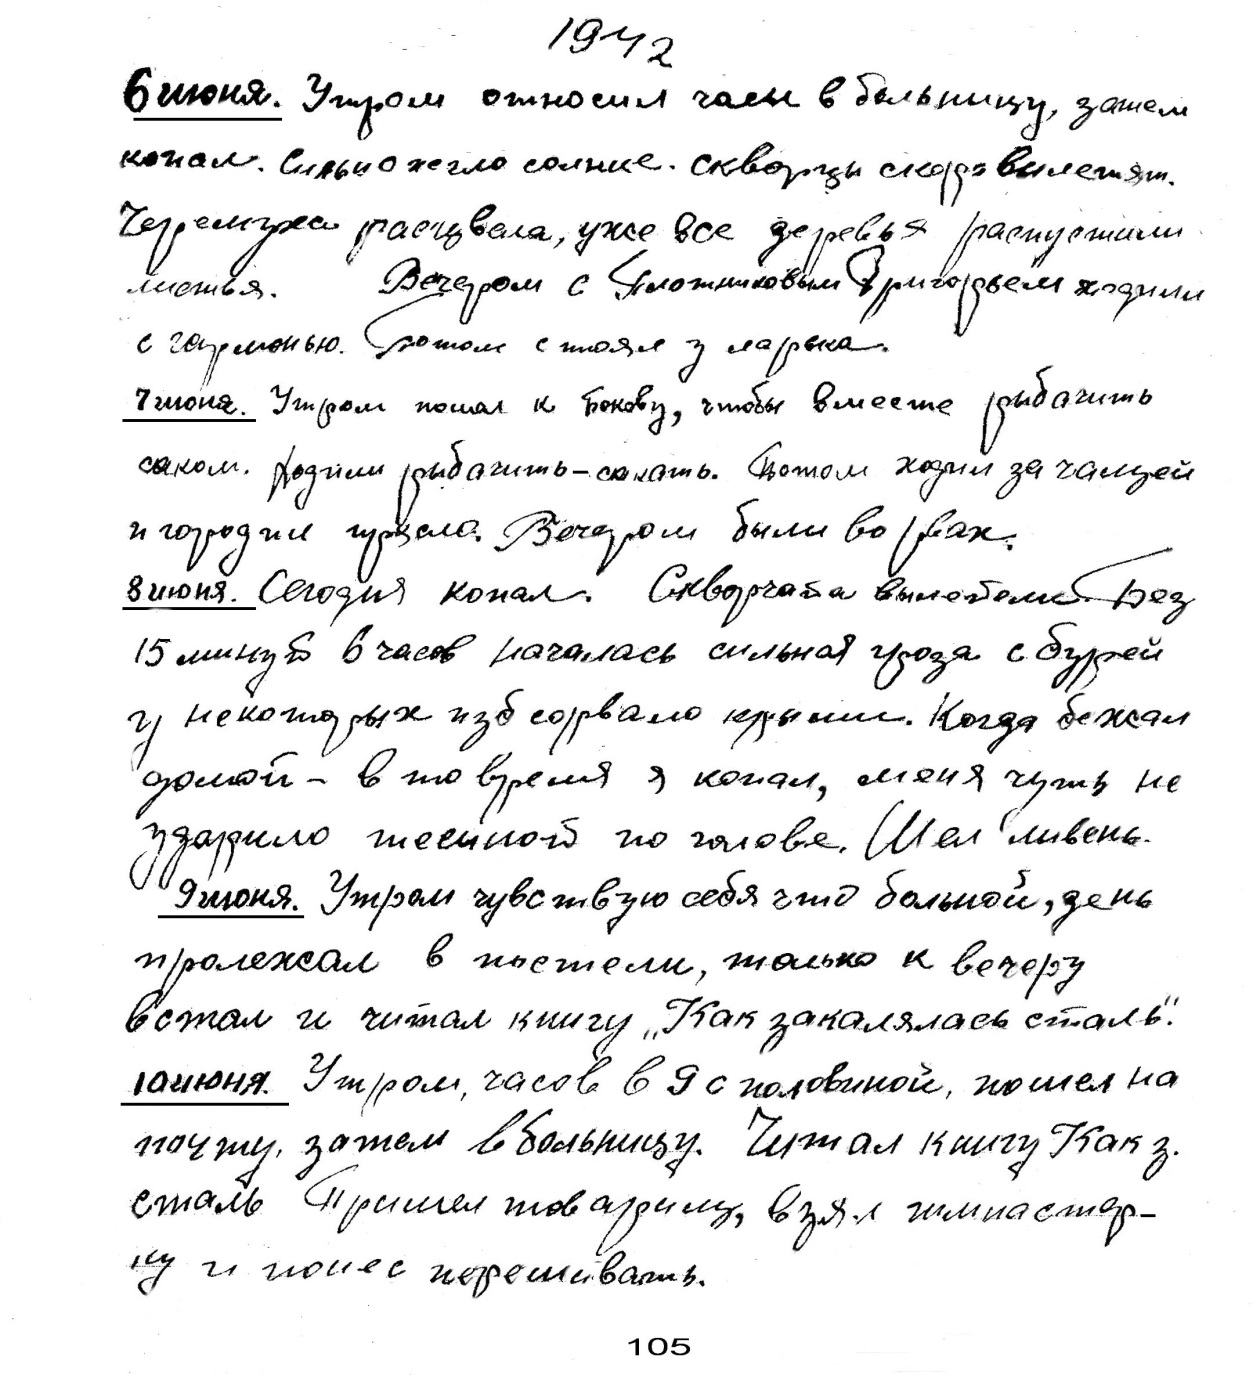 1942
6 июня. Утром относил часы в больницу, затем
копал. Сильно жгло солнце. Скворцы скоро вылетят.
Черемуха расцвела, уже все деревья распустили
листья. Вечером с Плотниковым Григорьем ходили
с гармонью. Потом стоял у ларька.
7 июня. Утром пошел к Бокову, чтобы вместе рыбачить
саком. Ходили рыбачить-сакать. Потом ходил за чащей
и городил прясла. Вечером были во рвах.
8 июня. Сегодня копал. Скворчата вылетели. Без
15 минут 6 часов началась сильная гроза с бурей
у некоторых изб сорвало крыши. Когда бежал
домой - в то время я копал, меня чуть не
ударило тесиной по голове. Шел ливень.
9 июня. Утром чувствую себя что больной, день
пролежал в постели, только к вечеру
встал и читал книгу „Как закалялась сталь".
10 июня. Утром, часов в 9 с половиной, пошел на
почту, затем в больницу. Читал книгу Как з.
сталь Пришел товарищ, взял гимнастер-
ку и понес перешивать.
105